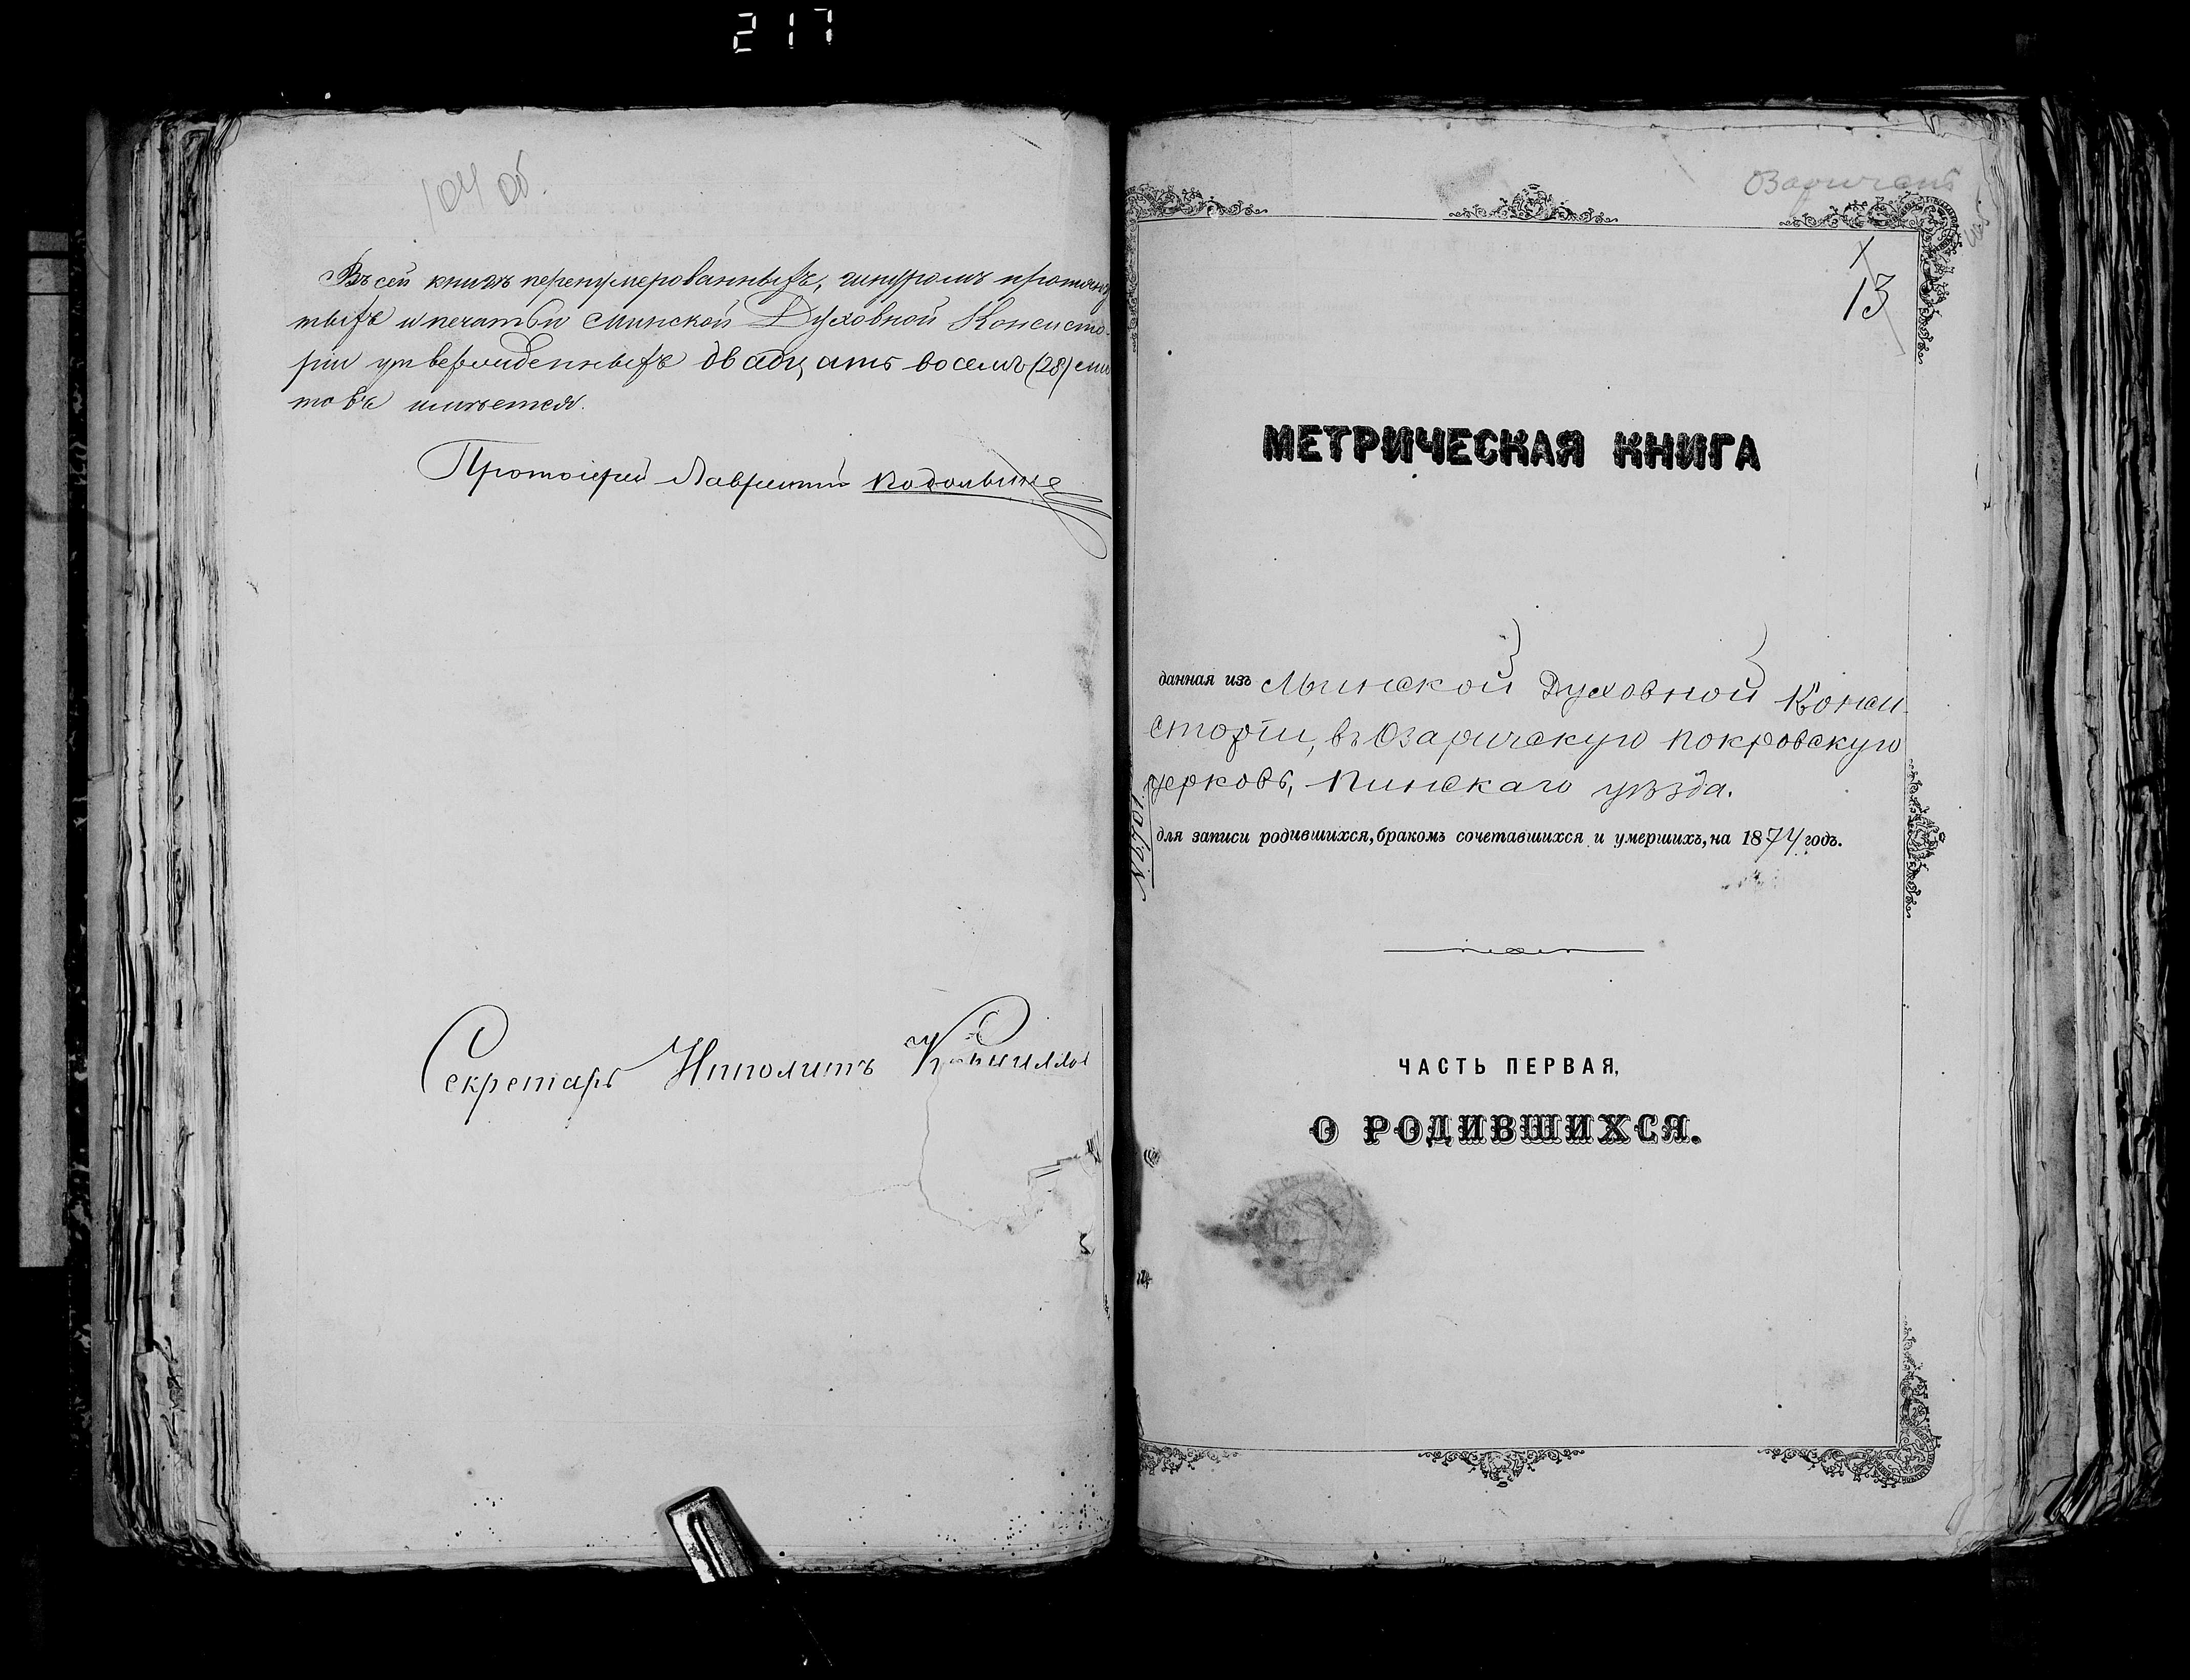 217
104 об.
Въ сей книгѣ перенумерованныхъ, шнуромъ протяну
тыхъ и печатью Минской Духовной Консисто-
ріи утвержденныхъ двадцать восемь (28) лис
товъ имѣется.
Протоіерей Лаврентій
Секретарь Ипполитъ
Озаричская
13
МЕТРИЧЕСКАЯ КНИГА
данная изъ Минской Духовной Конси-
сторіи, въ Озаричскую Покровскую
церковь, Пинскаго уѣзда.
для записи родившихся, бракомъ сочетавшихся и умершихъ, на 1874 годъ.
ЧАСТЬ ПЕРВАЯ,
О РОДИВШИХСЯ.